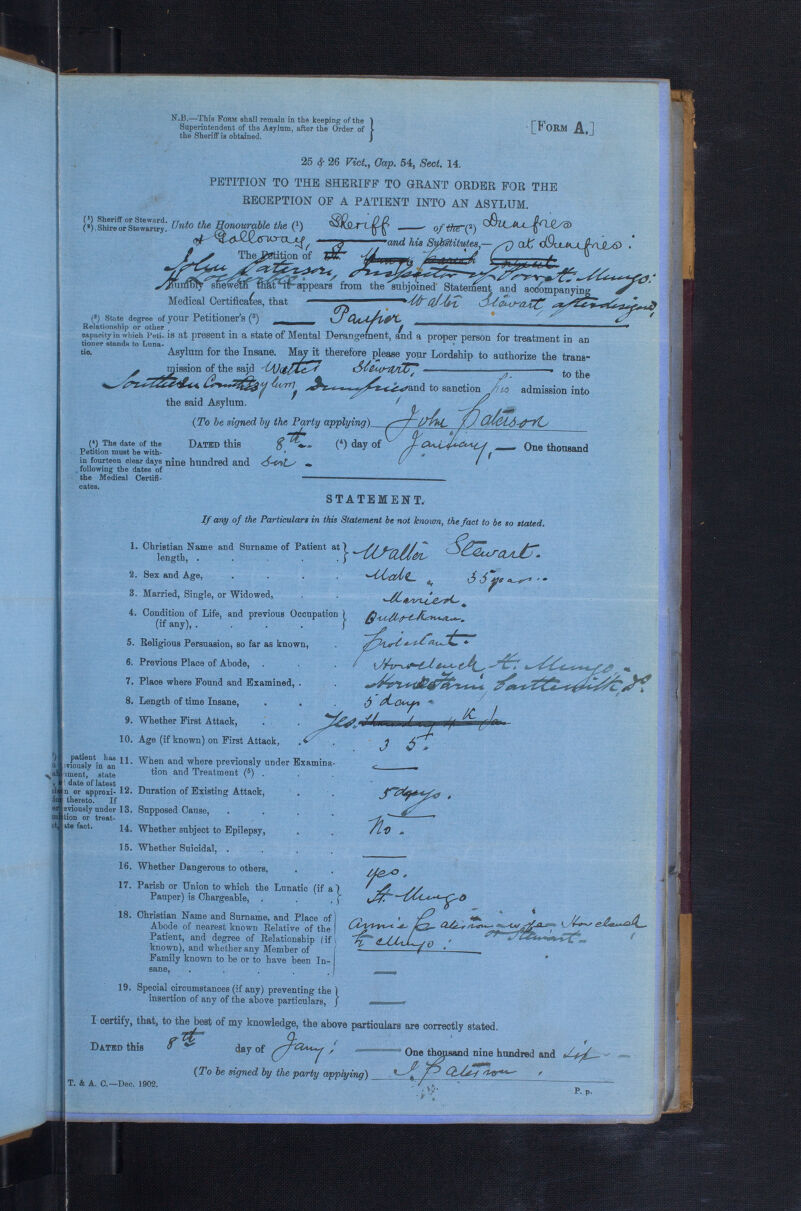 N.B.—This Form shall remain in the keeping of the
Superintendent of the Asylum, after the Order of
the Sheriff is obtained.
[Form A.]
25 & 26 Vict., Cap. 54, Sect. 14.
PETITION TO THE SHERIFF TO GRANT ORDER FOR THE
RECEPTION OF A PATIENT INTO AN ASYLUM.
(1) Sheriff or Steward.
(2) Shire or Stewartry.
Unto the Honourable the (1) Sheriff — of the (2) Dumfries
& Galloway, — and his Substitutes,— at Dumfries:
The Petition of
John Paterson, Inspector of Poor St. Mungo:
humbly sheweth that it appears from the subjoined Statement and accompanying
Medical Certificates, that — Walter Stewart,
(3) State degree of
Relationship or other
capacity in which Peti-
tioner stands to Luna-
tic.
your Petitioner's (3) — Pauper, —
is at present in a state of Mental Derangement, and a proper person for treatment in an
Asylum for the Insane. May it therefore please your Lordship to authorize the trans-
mission of the said Walter Stewart, — to the
Southern Counties Asylum, Dumfries and to sanction his admission into
the said Asylum.
(To be signed by the Party applying) John Paterson
(4) The date of the
Petition must be with-
in fourteen clear days
following the dates of
the Medical Certifi-
cates.
Dated this 8th (4) day of January, — One thousand
nine hundred and Six —
STATEMENT.
If any of the Particulars in this Statement be not known, the fact to be so stated.
1. Christian Name and Surname of Patient at length, . Walter Stewart.
2. Sex and Age, Male " 35 years
3. Married, Single, or Widowed, Married.
4. Condition of Life, and previous Occupation (if any), .
5. Religious Persuasion, so far as known, Protestant.
6. Previous Place of Abode, . Howcleuch St. Mungo
7. Place where Found and Examined, . Farm, Castlemilk, Do.
8. Length of time Insane, 5 days
9. Whether First Attack, Yes.
10. Age (if known) on First Attack, 35.
patient has
viously in an
date of latest
or approxi-
thereto. If
eviously under
tion or treat-
ate fact.
11. When and where previously under Examina-
tion and Treatment (5) . —
12. Duration of Existing Attack, 5 days.
13. Supposed Cause, —
14. Whether subject to Epilepsy, No.
15. Whether Suicidal, . —
16. Whether Dangerous to others, yes.
17. Parish or Union to which the Lunatic (if a
Pauper) is Chargeable, . St. Mungo
18. Christian Name and Surname, and Place of
Abode of nearest known Relative of the
Patient, and degree of Relationship (if
known), and whether any Member of
Family known to be or to have been In-
sane, —
Annie Paterson or Stewart — wife — Howcleuch
St. Mungo.
19. Special circumstances (if any) preventing the
insertion of any of the above particulars, —
I certify, that, to the best of my knowledge, the above particulars are correctly stated.
Dated this 8th day of Jany: — One thousand nine hundred and six —
(To be signed by the party applying) J. Paterson
T. & A. C.—Dec. 1902.
P. p.